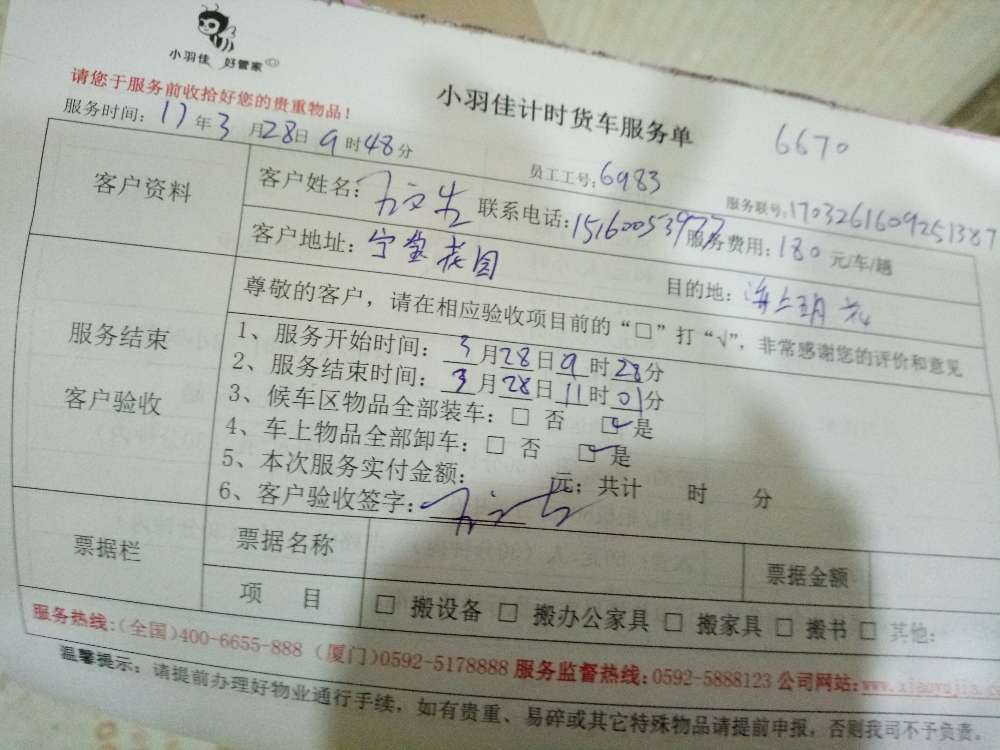 小羽佳 好管家
小羽佳计时货车服务单
6670
请您于服务前收拾好您的贵重物品!
服务时间: 17年3月28日9时48分
员工工号: 6983
服务联号: 1703261609251387
客户资料
客户姓名: 联系电话: 15160053977 服务费用: 180 元/车/趟
客户地址: 宁宝花园 目的地: 海上明
服务结束
客户验收
尊敬的客户，请在相应验收项目前的“□”打“√”，非常感谢您的评价和意见
1、服务开始时间: 3月28日9时28分
2、服务结束时间: 3月28日11时01分
3、候车区物品全部装车: □ 否 ☑是
4、车上物品全部卸车: □ 否 ☑是
5、本次服务实付金额: 元; 共计 时 分
6、客户验收签字:
票据栏
票据名称 票据金额
项 目 □ 搬设备 □ 搬办公家具 □ 搬家具 □ 搬书 □ 其他:
服务热线:(全国)400-6655-888 (厦门)0592-5178888 服务监督热线:0592-5888123 公司网站:www.xiaoyujia.c
温馨提示: 请提前办理好物业通行手续，如有贵重、易碎或其它特殊物品请提前申报，否则我司不予负责。